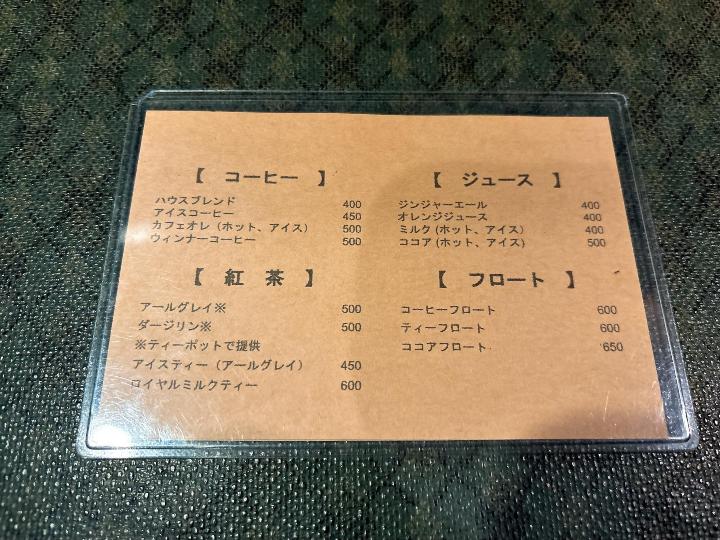 【 コーヒー 】
ハウスブレンド 400
アイスコーヒー 450
カフェオレ（ホット、アイス） 500
ウィンナーコーヒー 500
【 紅 茶 】
アールグレイ※ 500
ダージリン※ 500
※ティーポットで提供
アイスティー（アールグレイ） 450
ロイヤルミルクティー 600
【 ジュース 】
ジンジャーエール 400
オレンジジュース 400
ミルク(ホット、アイス) 400
ココア(ホット、アイス) 500
【 フロート 】
コーヒーフロート 600
ティーフロート 600
ココアフロート 650